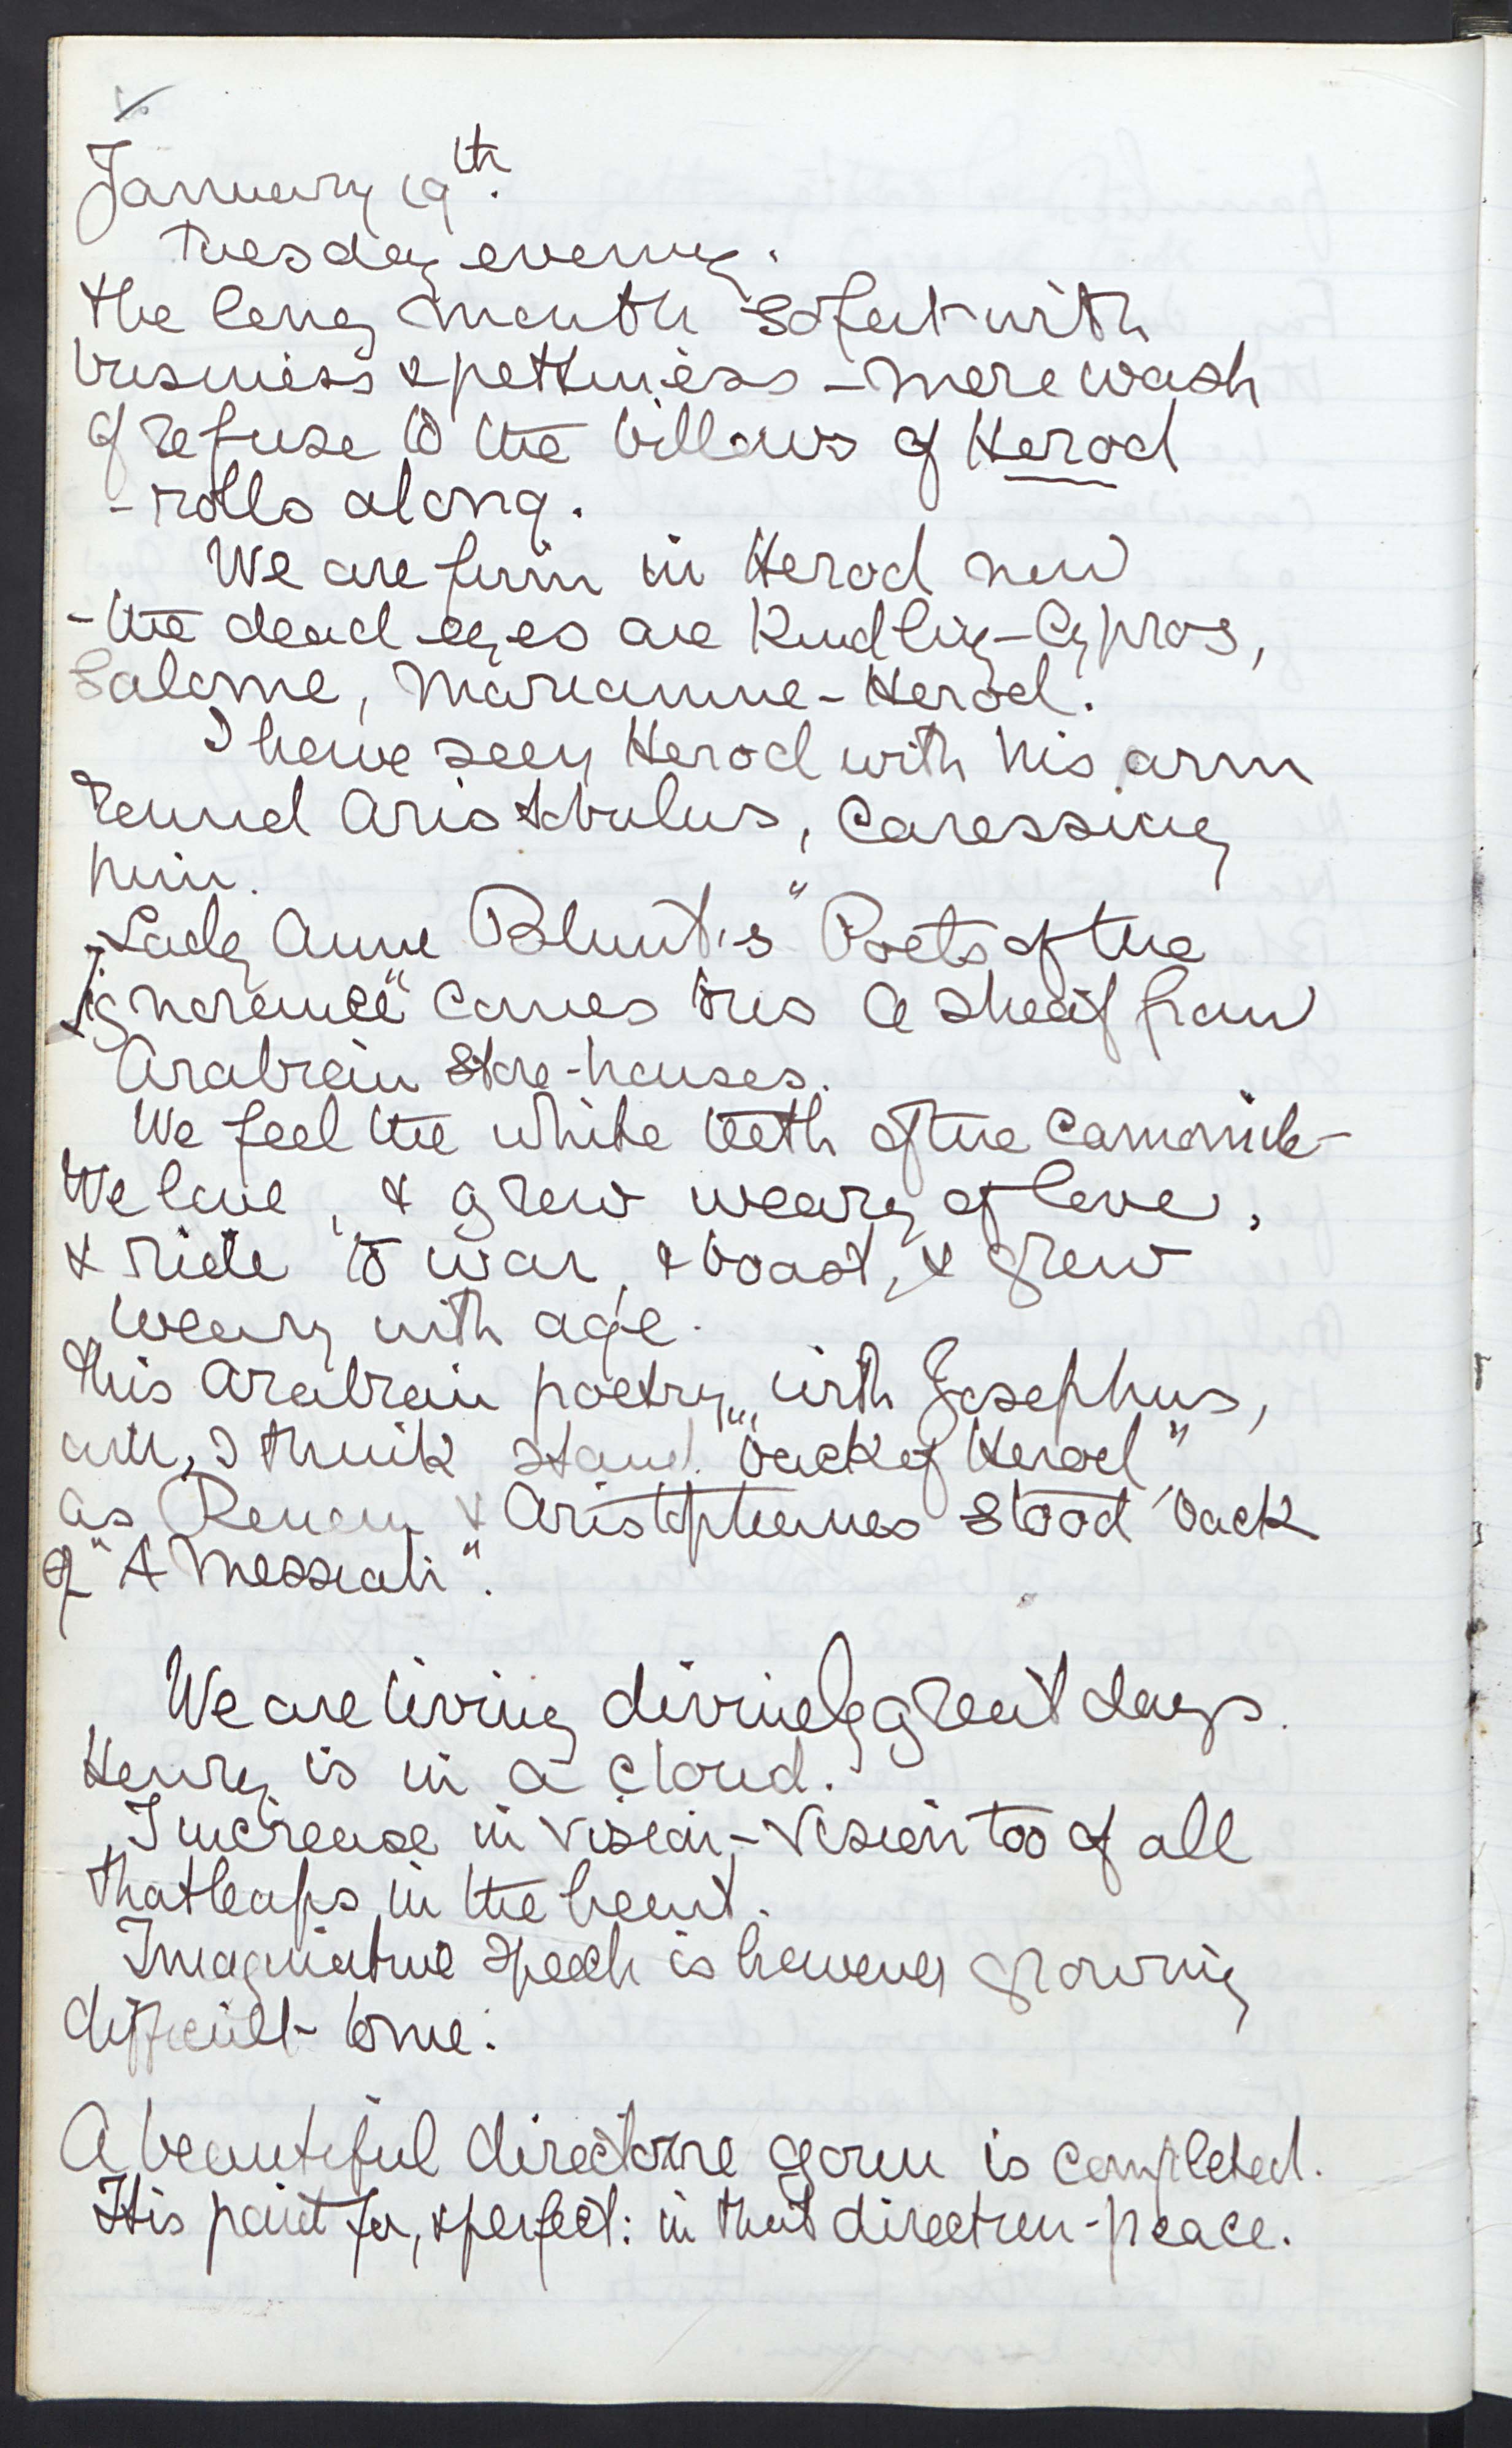 January 19th.
Tuesday evening.
The long month so fent with
business & pettiness - mere wash
of refuse to the billows of Herod
- rolls along.
We are firm in Herod now
- the dead eyes are kindling - Cypros,
Salome, Mariamne - Herod.
I have seen Herod with his arm
round Aristobulus, caressing
him.
Lady Anne Blunt's "Poets of the
ignorance" comes to us a sheaf from
Arabian store-houses.
We feel the white teeth of the camomile -
We love, & grow weary of love,
& ride to war, & boast, & grow
weary with age.
This Arabian poetry, with Josephus,
will, I think stand "back of Herod"
as Renan & Aristophanes stood back
of "A Messiah".
We are living divinely great days.
Henry is in a cloud.
I increase in vision - vision too of all
that leaps in the heart.
Imaginative speech is however growing
difficult to me.
A beautiful directoire gown is completed.
It is paid for, & perfect: in that direction - peace.